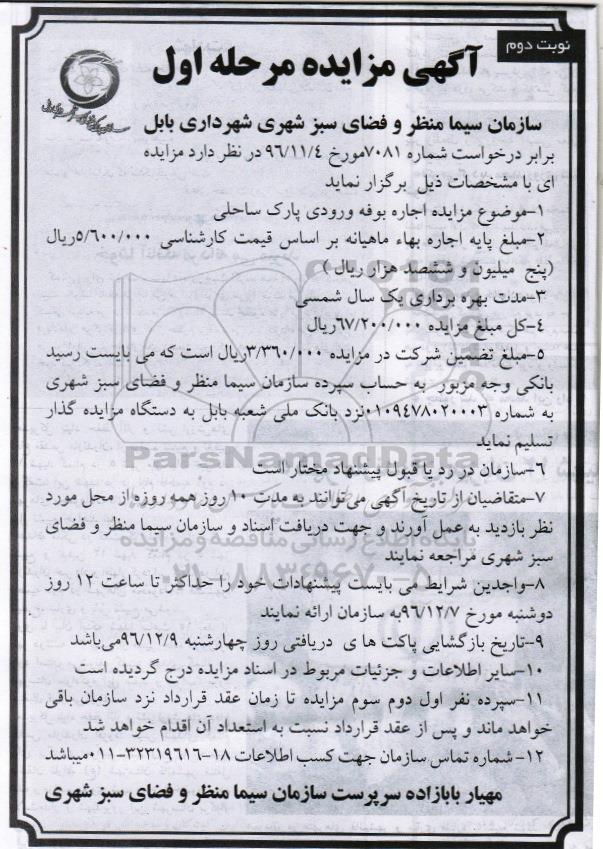 نوبت دوم
آگهی مزایده مرحله اول
سازمان سیما منظر و فضای سبز شهری شهرداری بابل
برابر درخواست شماره ۷۰۸۱مورخ ۹۶/۱۱/۴ در نظر دارد مزایده
ای با مشخصات ذیل برگزار نماید
۱-موضوع مزایده اجاره بوفه ورودی پارک ساحلی
۲-مبلغ پایه اجاره بهاء ماهیانه بر اساس قیمت کارشناسی ۵/۶۰۰/۰۰۰ریال
(پنج میلیون و ششصد هزار ریال )
۳-مدت بهره برداری یک سال شمسی
۴-کل مبلغ مزایده ۶۷/۲۰۰/۰۰۰ریال
۵-مبلغ تضمین شرکت در مزایده ۳/۳۶۰/۰۰۰ریال است که می بایست رسید
بانکی وجه مزبور به حساب سپرده سازمان سیما منظر و فضای سبز شهری
به شماره ۰۱۰۹۴۷۸۰۲۰۰۰۳نزد بانک ملی شعبه بابل به دستگاه مزایده گذار
تسلیم نماید
ParsNamadData
۶-سازمان در رد یا قبول پیشنهاد مختار است
۷-متقاضیان از تاریخ آگهی می توانند به مدت ۱۰ روز همه روزه از محل مورد
نظر بازدید به عمل آورند و جهت دریافت اسناد و سازمان سیما منظر و فضای
پایگاه اطلاع رسانی مناقصه و مزایده
سبز شهری مراجعه نمایند
۰۲۱-۸۸۳۴۹۶۷۰-۵
۸-واجدین شرایط می بایست پیشنهادات خود را حداکثر تا ساعت ۱۲ روز
دوشنبه مورخ ۹۶/۱۲/۷به سازمان ارائه نمایند
۹-تاریخ بازگشایی پاکت ها ی دریافتی روز چهارشنبه ۹۶/۱۲/۹می‌باشد
۱۰-سایر اطلاعات و جزئیات مربوط در اسناد مزایده درج گردیده است
۱۱-سپرده نفر اول دوم سوم مزایده تا زمان عقد قرارداد نزد سازمان باقی
خواهد ماند و پس از عقد قرارداد نسبت به استعداد آن اقدام خواهد شد
۱۲-شماره تماس سازمان جهت کسب اطلاعات ۱۸-۰۱۱-۳۲۳۱۹۶۱۶میباشد
مهیار بابازاده سرپرست سازمان سیما منظر و فضای سبز شهری